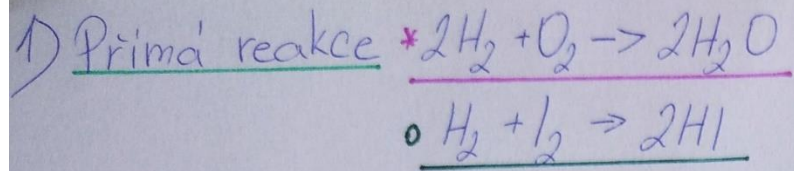 1) Přímá reakce * 2H₂ + O₂ -> 2H₂O
o H₂ + I₂ -> 2HI